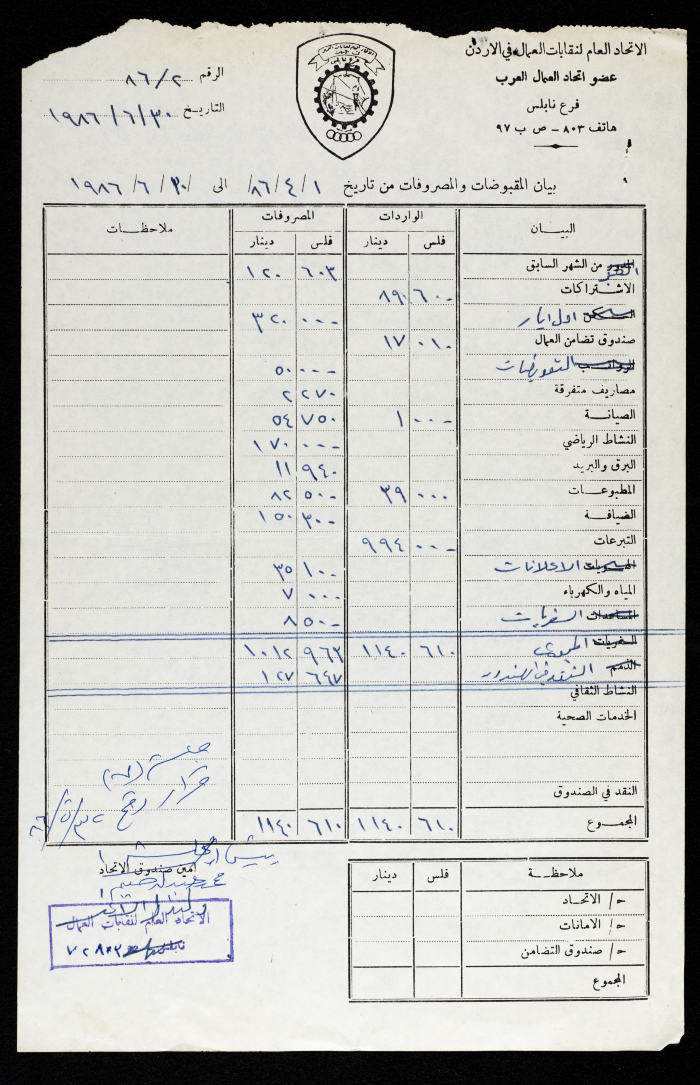 الاتحاد العام لنقابات العمال في الاردن
عضو اتحاد العمال العرب
فرع نابلس
هاتف ٨٠٣ - ص ب ٩٧
الرقم ٨٦/٢
التاريخ ١٩٨٦/٦/٣٠
بيان المقبوضات والمصروفات من تاريخ ٨٦/٤/١ الى ١٩٨٦/٦/٣٠
البيــان الواردات المصروفات ملاحظــات
فلس دينار فلس دينار
من الشهر السابق ٦٠٣ ١٢٠
الاشتراكات ٦٠٠ ٨٩
اول ايار ٠٠٠ ٣٢٠
صندوق تضامن العمال ٠١٠ ١٧
التعويضات ٠٠٠ ٥٠
مصاريف متفرقة ٢٧٠ ٢
الصيانة ٠٠٠ ١ ٧٥٠ ٥٤
النشاط الرياضي ٠٠٠ ١٧٠
البرق والبريد ٩٤٠ ١١
المطبوعات ٠٠٠ ٣٩ ٥٠٠ ٨٢
الضيافة ٣٠٠ ١٥٠
التبرعات ٠٠٠ ٩٩٤
الاعلانات ١٠٠ ٣٥
المياه والكهرباء ٠٠٠ ٧
المساعدات السفريات ٥٠٠ ٨
السفريات المجموع ٦١٠ ١١٤٠ ٩٦٣ ١٠١٢
الذمم النقد في الصندوق ٦٤٧ ١٢٧
النشاط الثقافي
الخدمات الصحية
النقد في الصندوق
المجموع ٦١٠ ١١٤٠ ٦١٠ ١١٤٠
جلسة
قرار رقم
امين صندوق الاتحاد
الاتحاد العام لنقابات العمال
نابلس
ملاحظــة فلس دينار
ح/ الاتحاد
ح/ الامانات
ح/ صندوق التضامن
المجموع